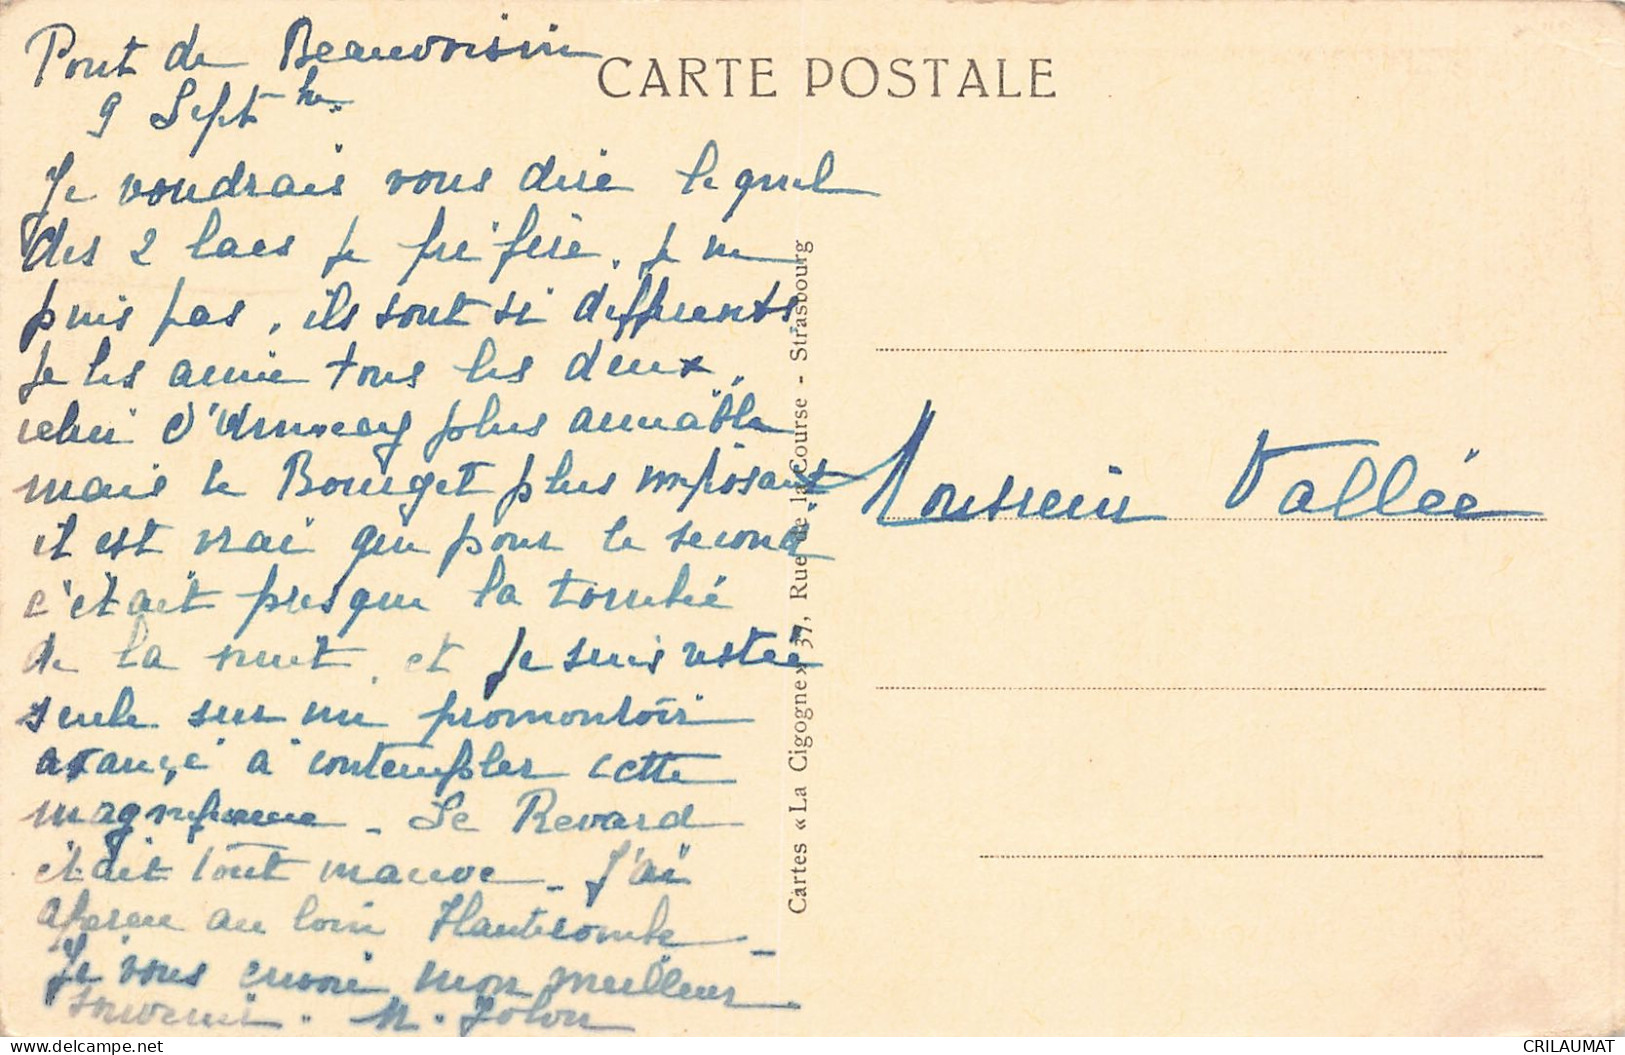 Pont de Beauvoisin
9 Septbre
CARTE POSTALE
Je voudrais vous dire lequel
des 2 lacs je préfère, je ne
puis pas, ils sont si différents
je les aime tous les deux,
celui d'Annecy plus aimable
mais le Bourget plus imposant
il est vrai que pour le second
c'était presque la tombée
de la nuit, et je suis restée
seule sur un promontoire
avancé à contempler cette
magnificence - Le Revard
était tout mauve - J'ai
aperçu au loin Hautecombe -
Je vous envoie mon meilleur
souvenir. M.
Cartes « La Cigogne » 37, Rue de la Course - Strasbourg
Monsieur Vallée
CRILAUMAT
www.delcampe.net